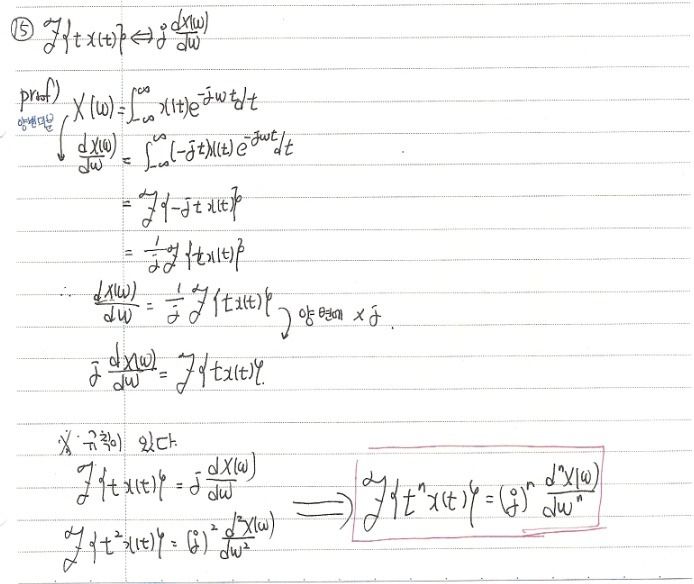 ⑮ ℱ{t x(t)} ⇔ j dX(w)/dw
proof) X(w) = ∫_{-∞}^{∞} x(t)e^{-jwt}dt
양변미분
dX(w)/dw = ∫_{-∞}^{∞} (-jt)x(t) e^{-jwt}dt
= ℱ{-jt x(t)}
= 1/j ℱ{t x(t)}
∴ dX(w)/dw = 1/j ℱ{t x(t)}
양변에 × j.
j dX(w)/dw = ℱ{t x(t)}.
※ 규칙이 있다
ℱ{t x(t)} = j dX(w)/dw
ℱ{t² x(t)} = (j)² d²X(w)/dw²
⟹ ℱ{tⁿ x(t)} = (j)ⁿ dⁿX(w)/dwⁿ